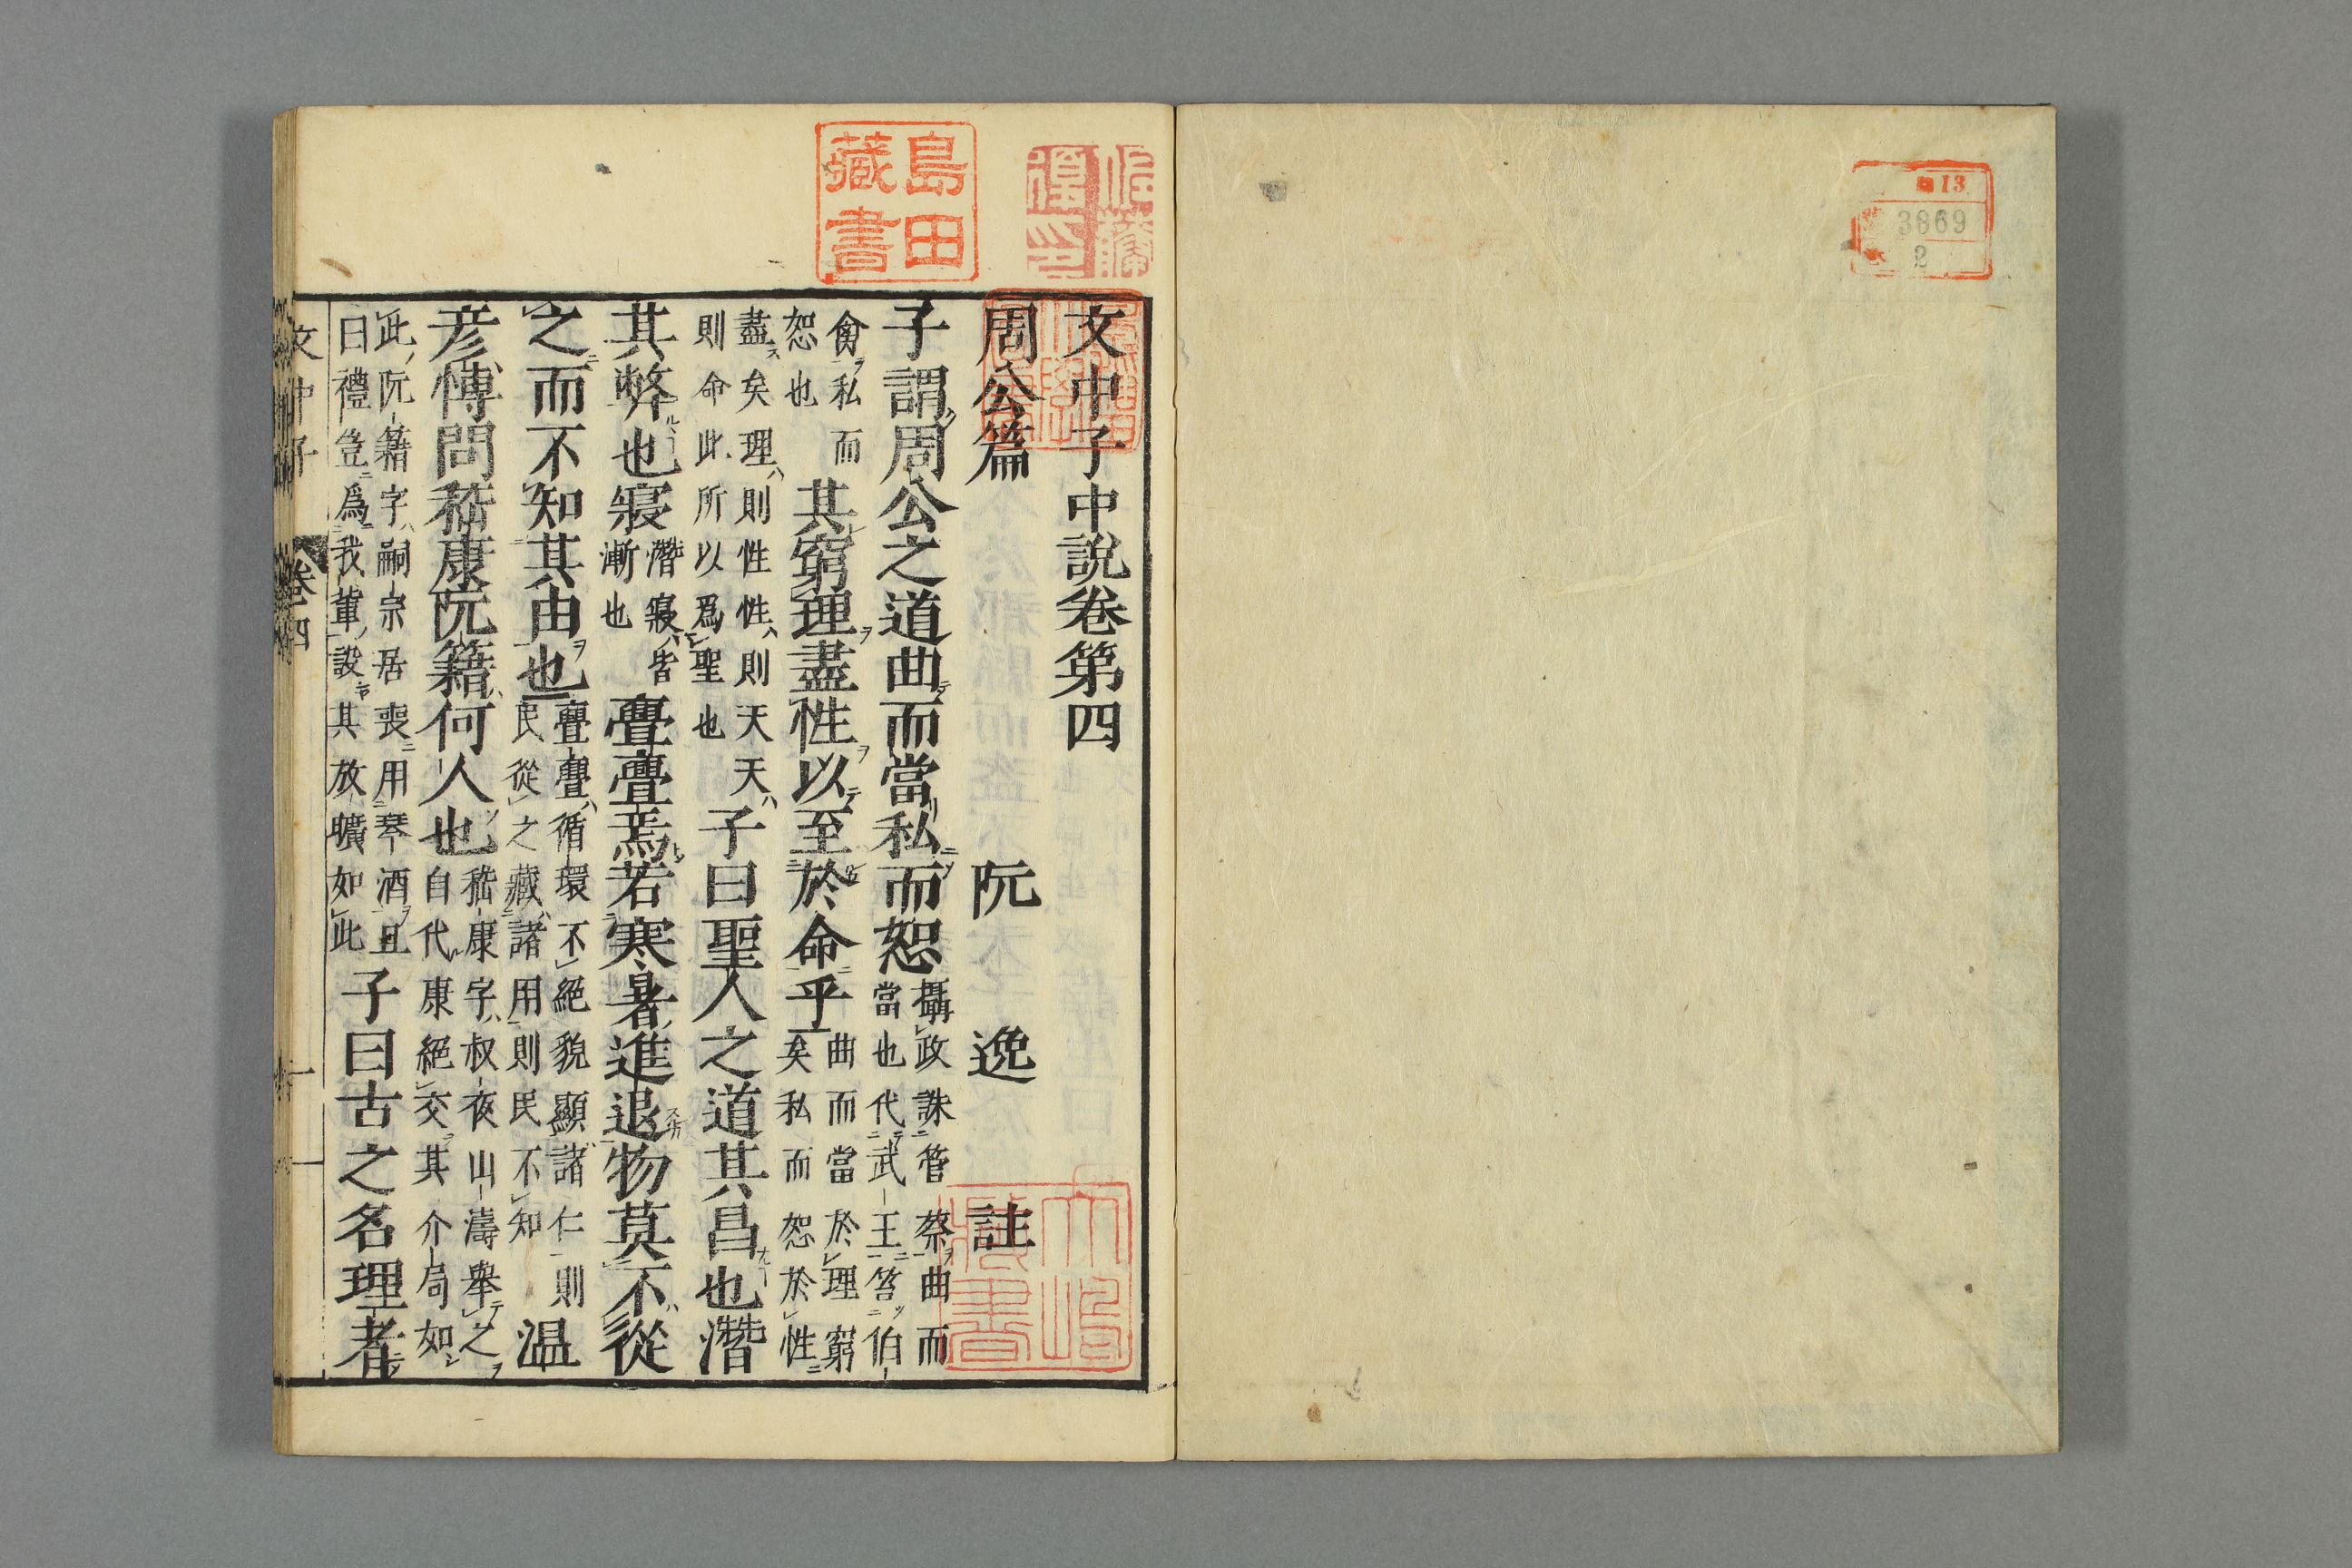 13
3869
2
島田
藏書
文中子中說卷第四
周公篇 阮逸註
子謂周公之道曲而當私而恕 攝政誅管蔡曲而當也代武王笞伯
禽私而恕也 其窮理盡性以至於命乎 曲而當於理窮矣私而恕於性
盡矣理則性性則天天則命此所以爲聖也 子曰聖人之道其昌也潛
其弊也寑 潛寑皆漸也 亹亹焉若寒暑進退物莫不從
之而不知其由也 亹亹循環不絕貌顯諸仁則民從之藏諸用則民不知 温
彥博問嵇康阮籍何人也 嵇康字叔夜山濤舉之自代康絕交其介局如
此阮籍字嗣宗居喪用琴酒且曰禮豈爲我輩設其放曠如此 子曰古之名理者
文中子 卷四 一